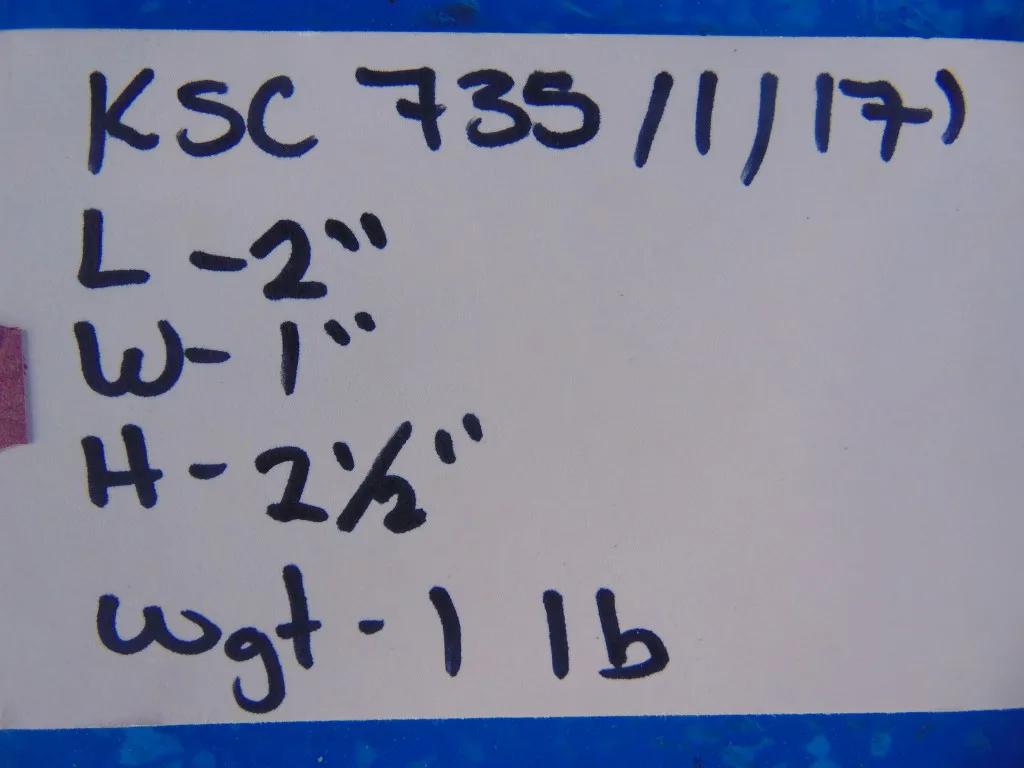 KSC 735/1/17)
L - 2"
W - 1"
H - 2 1/2"
Wgt - 1 lb